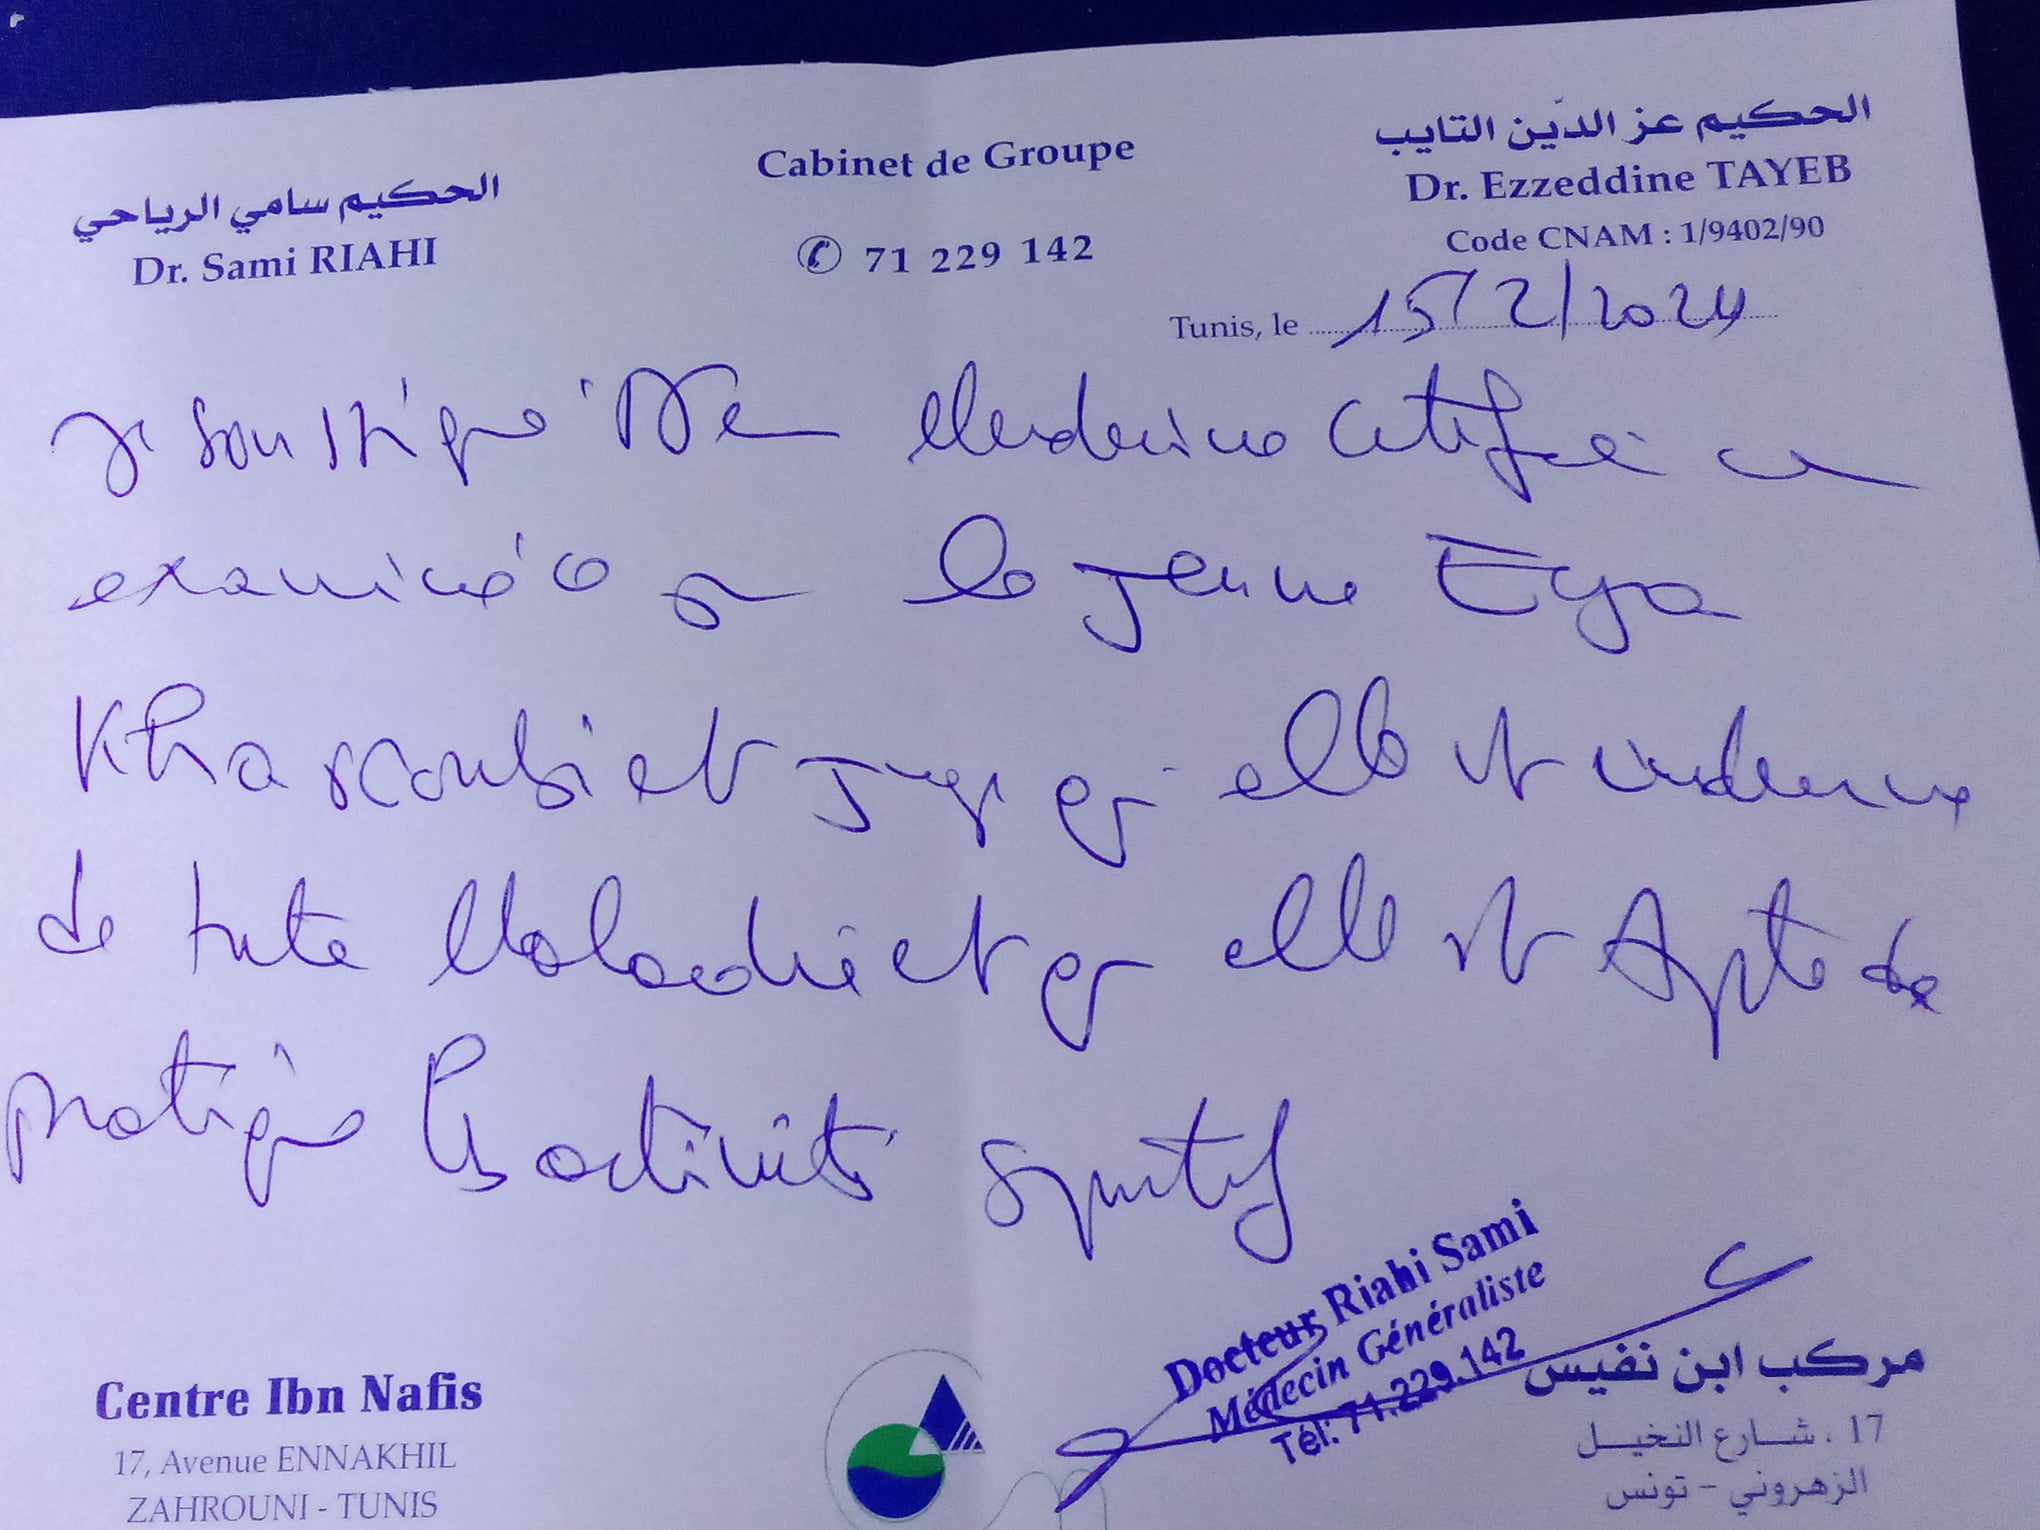 الحكيم سامي الرياحي
Dr. Sami RIAHI
Cabinet de Groupe
71 229 142
الحكيم عز الدّين التايب
Dr. Ezzeddine TAYEB
Code CNAM : 1/9402/90
Tunis, le 15/2/2024
Je soussigné Dr Medecine certifie
examiné ce jr la Jeune Eya
Kharroubi et Juge qu' elle est indemne
de toute Maladie et qu elle est Apte de
pratiqué les activités sportif
Docteur Riahi Sami
Médecin Généraliste
Tél: 71.229.142
Centre Ibn Nafis
17, Avenue ENNAKHIL
ZAHROUNI - TUNIS
مركب ابن نفيس
17 ، شارع النخيل
الزهروني - تونس